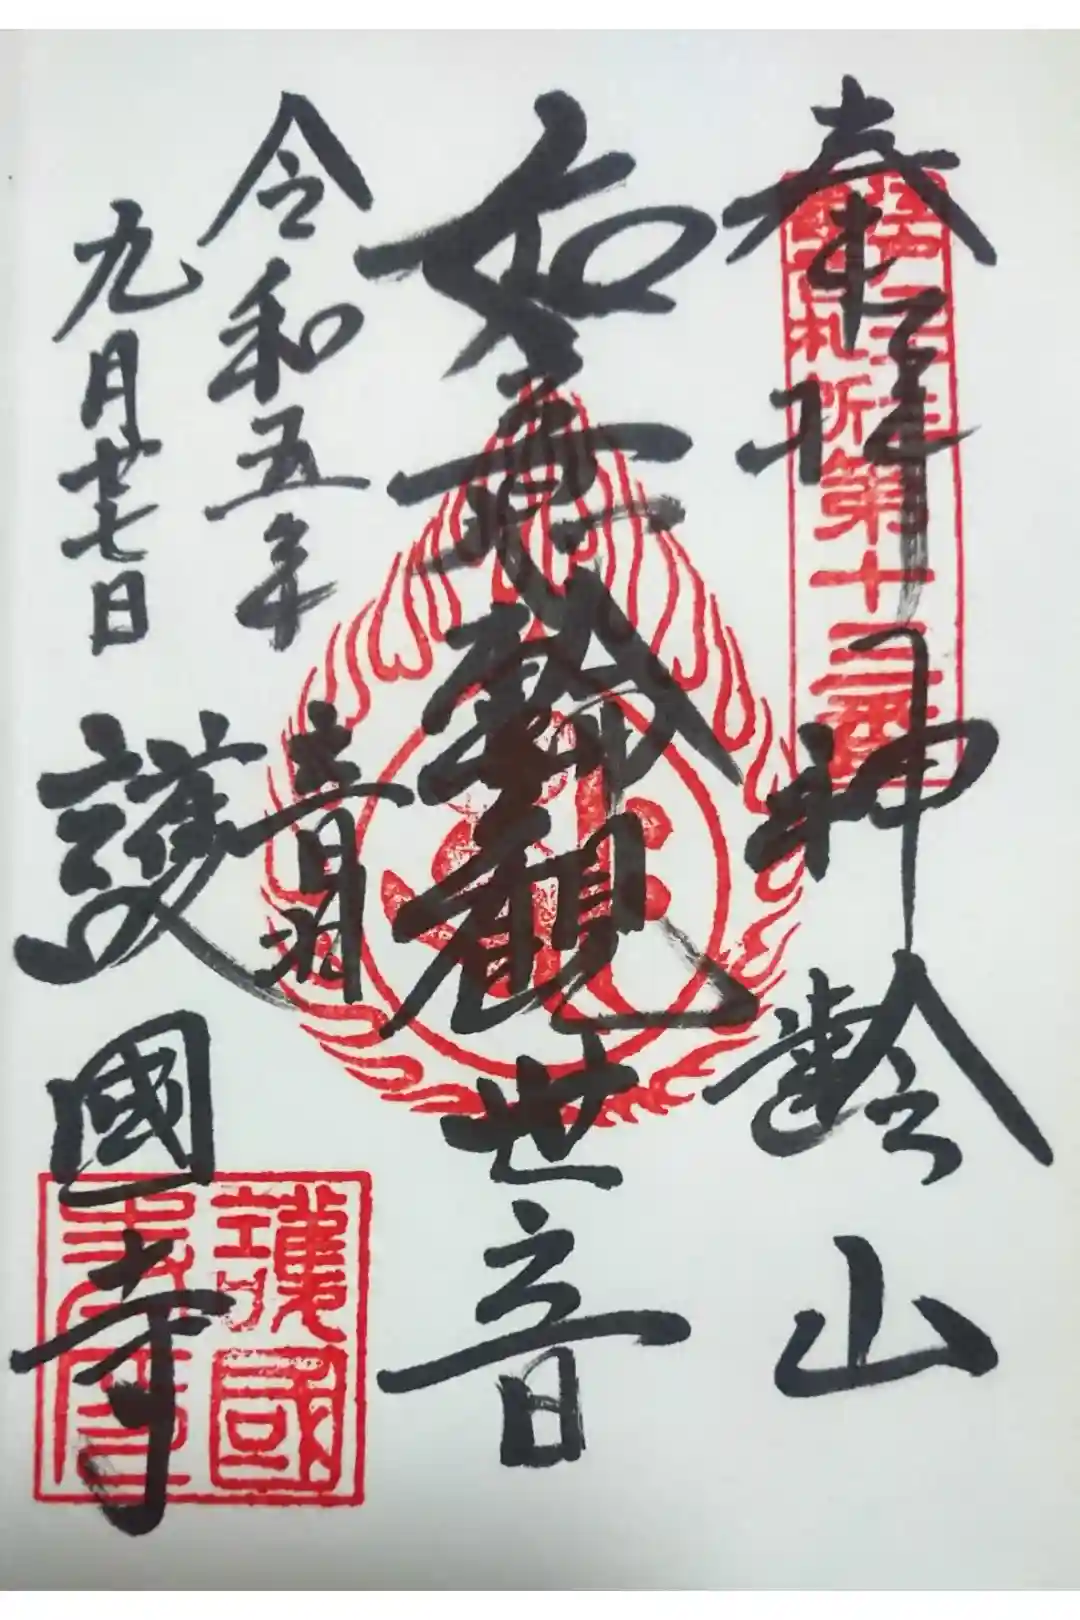 奉拝
神齢山
江戸三十三
札所第十三番
如意輪観世音
令和五年
九月廿七日
音羽
護國寺
護國
寺印